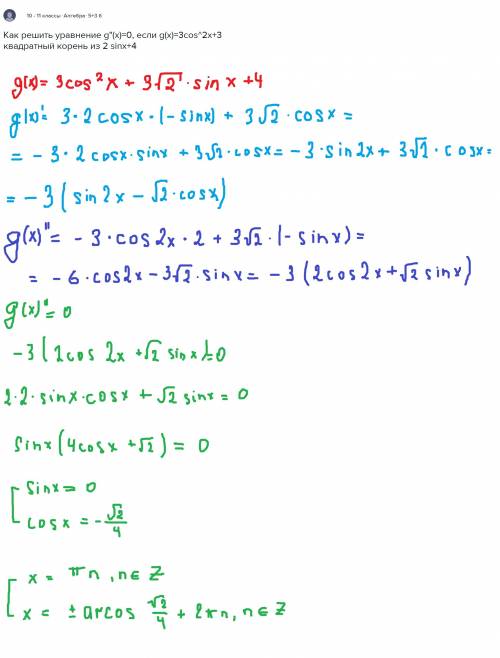 10 - 11 классы · Алгебра · 5+3 б
Как решить уравнение g"(x)=0, если g(x)=3cos^2x+3
квадратный корень из 2 sinx+4
g(x)= 3cos²x + 3√2 · sin x + 4
g(x)' = 3·2 cosx · (-sinx) + 3√2 · cosx =
= - 3 · 2 cosx · sinx + 3√2 · cosx = -3 · sin2x + 3√2 · cosx =
= -3 (sin2x - √2 · cosx)
g(x)" = -3 · cos2x · 2 + 3√2 · (-sinx) =
= -6 · cos2x - 3√2 · sinx = -3 (2cos2x + √2 sinx)
g(x)" = 0
-3 (2cos 2x + √2 sinx) = 0
2·2·sinx·cosx + √2 sinx = 0
sinx (4cosx + √2) = 0
[ sinx = 0
cosx = - √2/4
[ x = πn, n∈Z
x = ± arcos √2/4 + 2πn, n∈Z